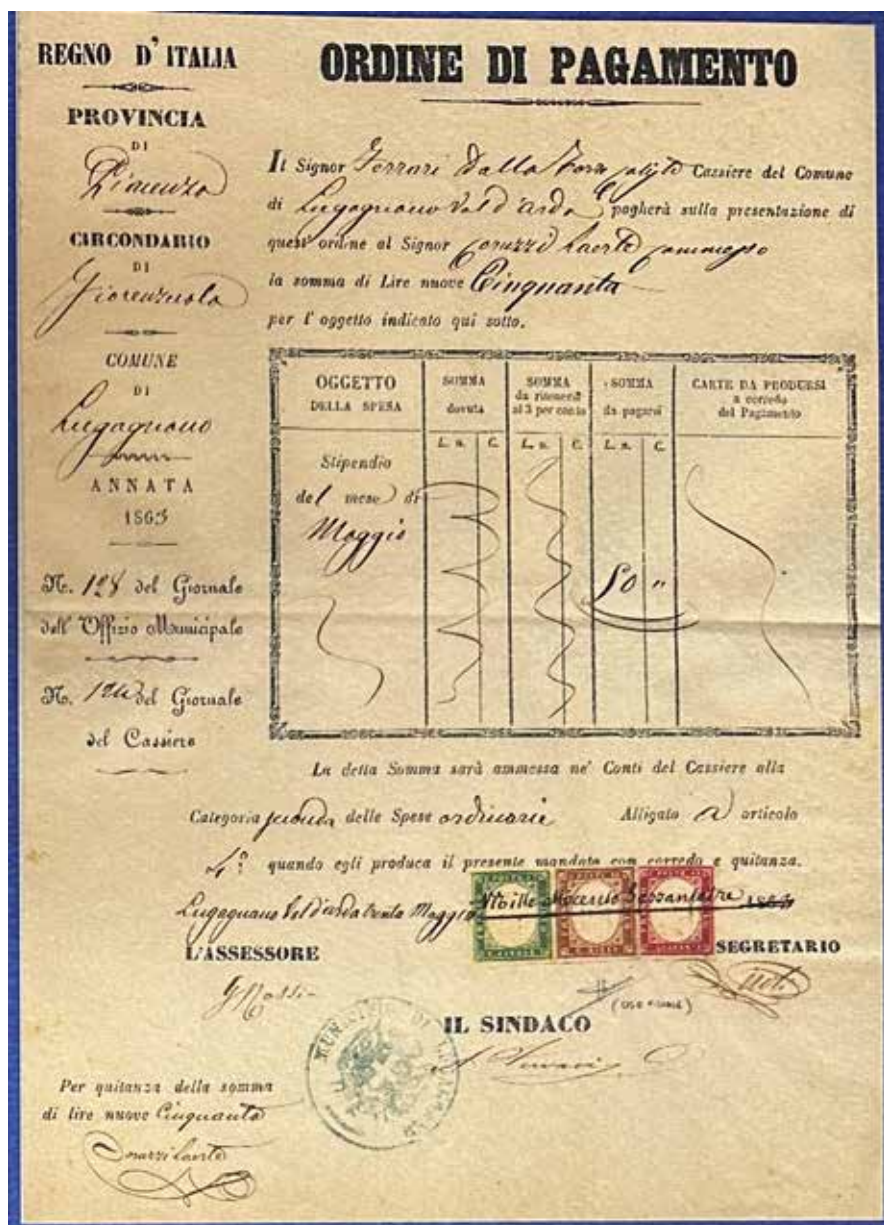 REGNO D'ITALIA
PROVINCIA
DI
Piacenza
CIRCONDARIO
DI
Fiorenzuola
COMUNE
DI
Lugagnano
ANNATA
1863
N. 128 del Giornale
dell' Offizio Municipale
N. del Giornale
del Cassiere
ORDINE DI PAGAMENTO
Il Signor Ferrari Dalla Cassiere del Comune
di Lugagnano Val d'arda pagherà sulla presentazione di
quest' ordine al Signor Laerte commesso
la somma di Lire nuove Cinquanta
per l' oggetto indicato qui sotto.
OGGETTO
DELLA SPESA
SOMMA
dovuta
SOMMA
da ritenersi
al 3 per cento
SOMMA
da pagarsi
CARTE DA PRODURSI
a corredo
del Pagamento
L. n. C. L. n. C. L. n. C.
Stipendio
del mese di
Maggio
50 "
La detta Somma sarà ammessa ne' Conti del Cassiere alla
Categoria seconda delle Spese ordinarie Alligato articolo
4° quando egli produca il presente mandato con corredo e quitanza.
Lugagnano Val d'arda trenta Maggio Mille Ottocento Sessantatre
L'ASSESSORE
SEGRETARIO
IL SINDACO
MUNICIPIO DI
Per quitanza della somma
di lire nuove Cinquanta
Laerte